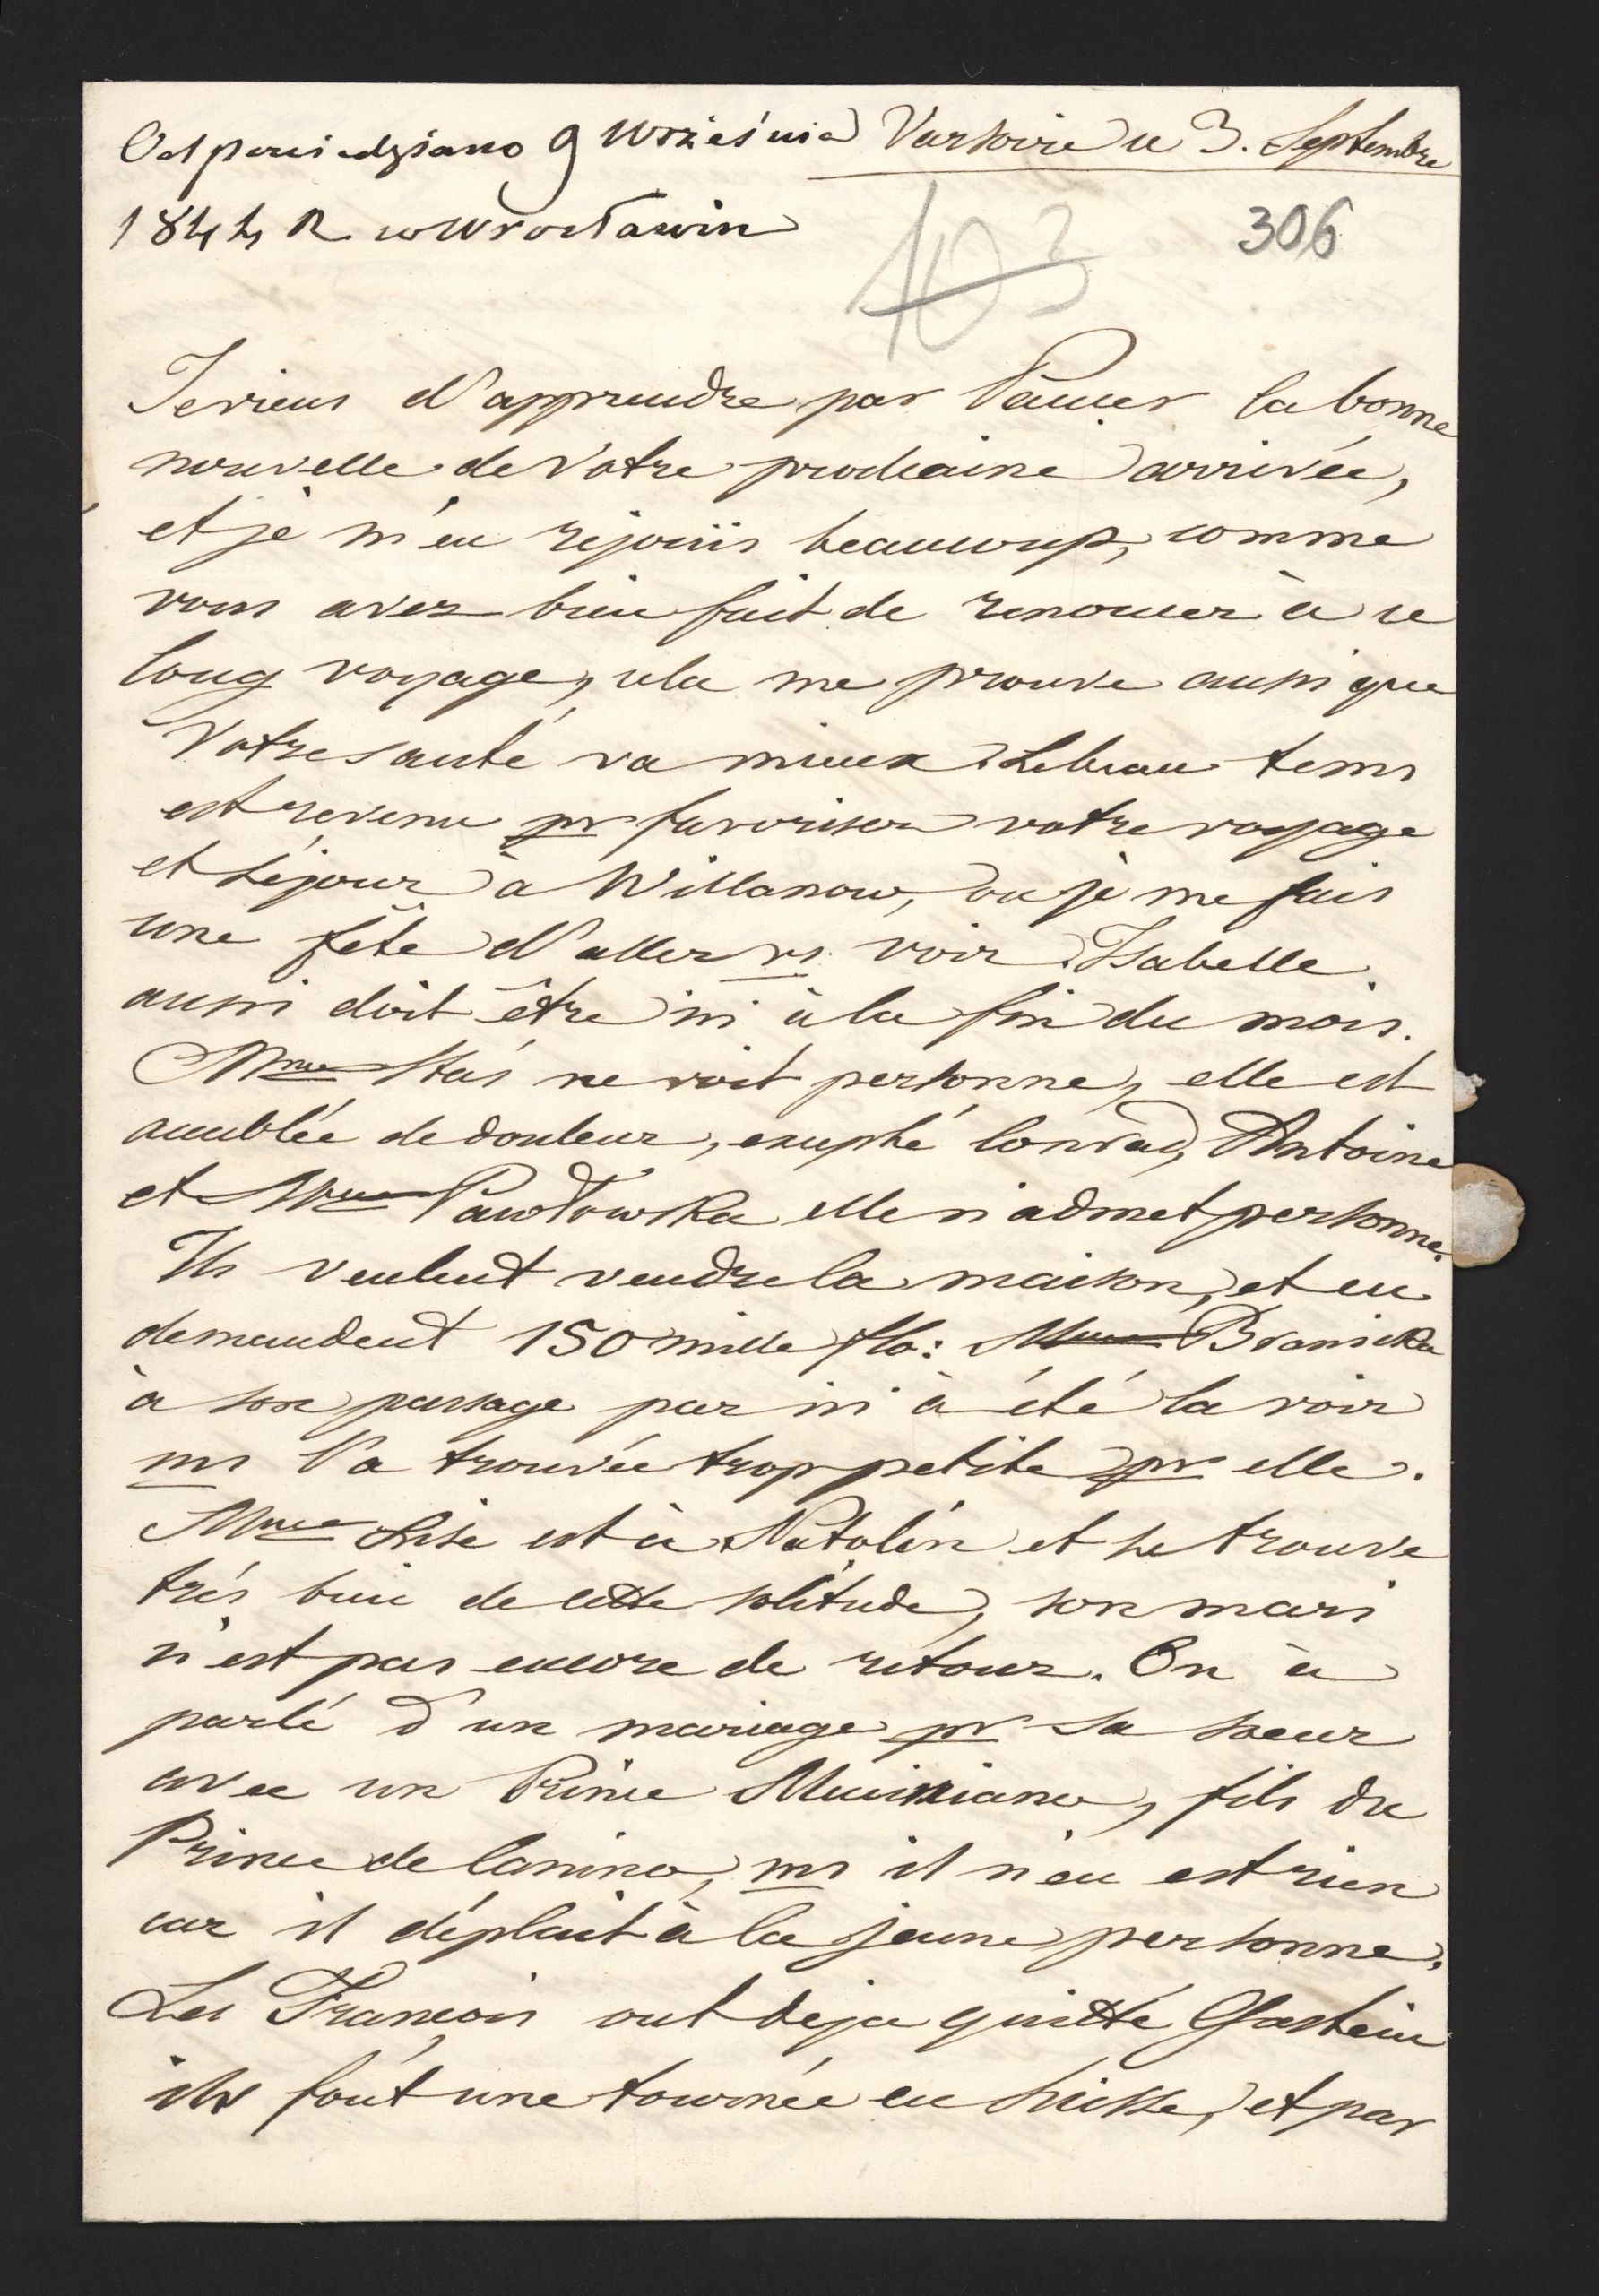 Odpowiedziano 9 Września Varsovie ce 3. Septembre
1844 R w Wrocławiu
103 306
Je viens d'apprendre par la bonne
nouvelle de Votre prochaine arrivée,
et je m'en rejouis beaucoup, comme
vous avez bien fait de renoncer à ce
long voyage, cela me prouve aussi que
Votre santé va mieux. Le beau tems
est revenu pr favoriser votre voyage
et séjour à Willanow, ou je me fais
une fête d'aller vs voir. Isabelle
aussi doit être ici à la fin du mois.
Mme Staś ne voit personne, elle est
accablée de douleur, excepté Conrad, Antoine
et Mme Pawłowska elle n'admet personne.
Ils veulent vendre la maison, et en
demandent 150 mille flo: Mme Branicka
à son passage par ici à été la voir
ms l'a trouvée trop petite pr elle.
Mme Lise est à Natolin et se trouve
très bien de cette solitude, son mari
n'est pas encore de retour. On à
parlé d'un mariage pr sa soeur
avec un Prince Musignano, fils du
Prince de Canino, ms il n'en est rien
car il déplait à la jeune personne.
Les François ont deja quitté Gastein
ils font une tournée en Suisse, et par